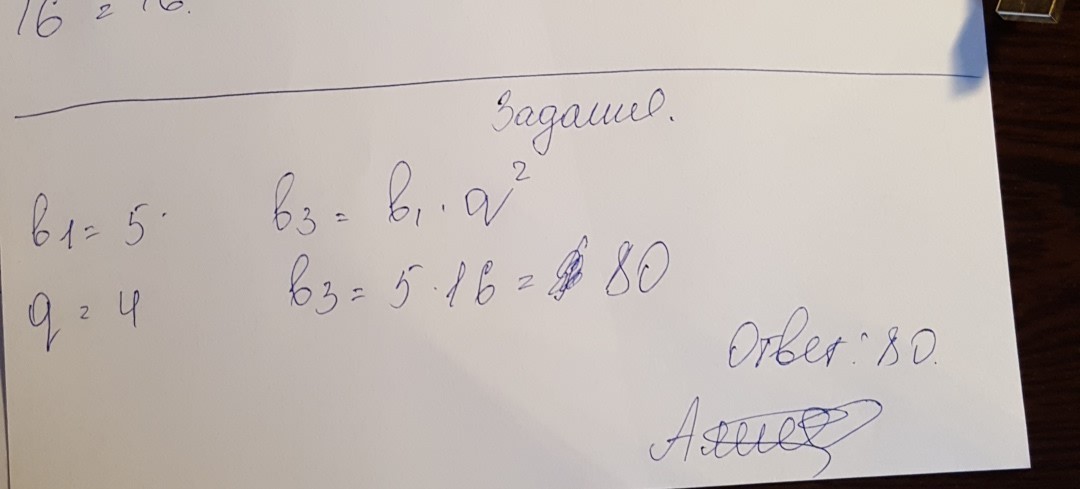 16 = 16.
Задание.
b1 = 5
b3 = b1 · q²
q = 4
b3 = 5 · 16 = 80
Ответ: 80.